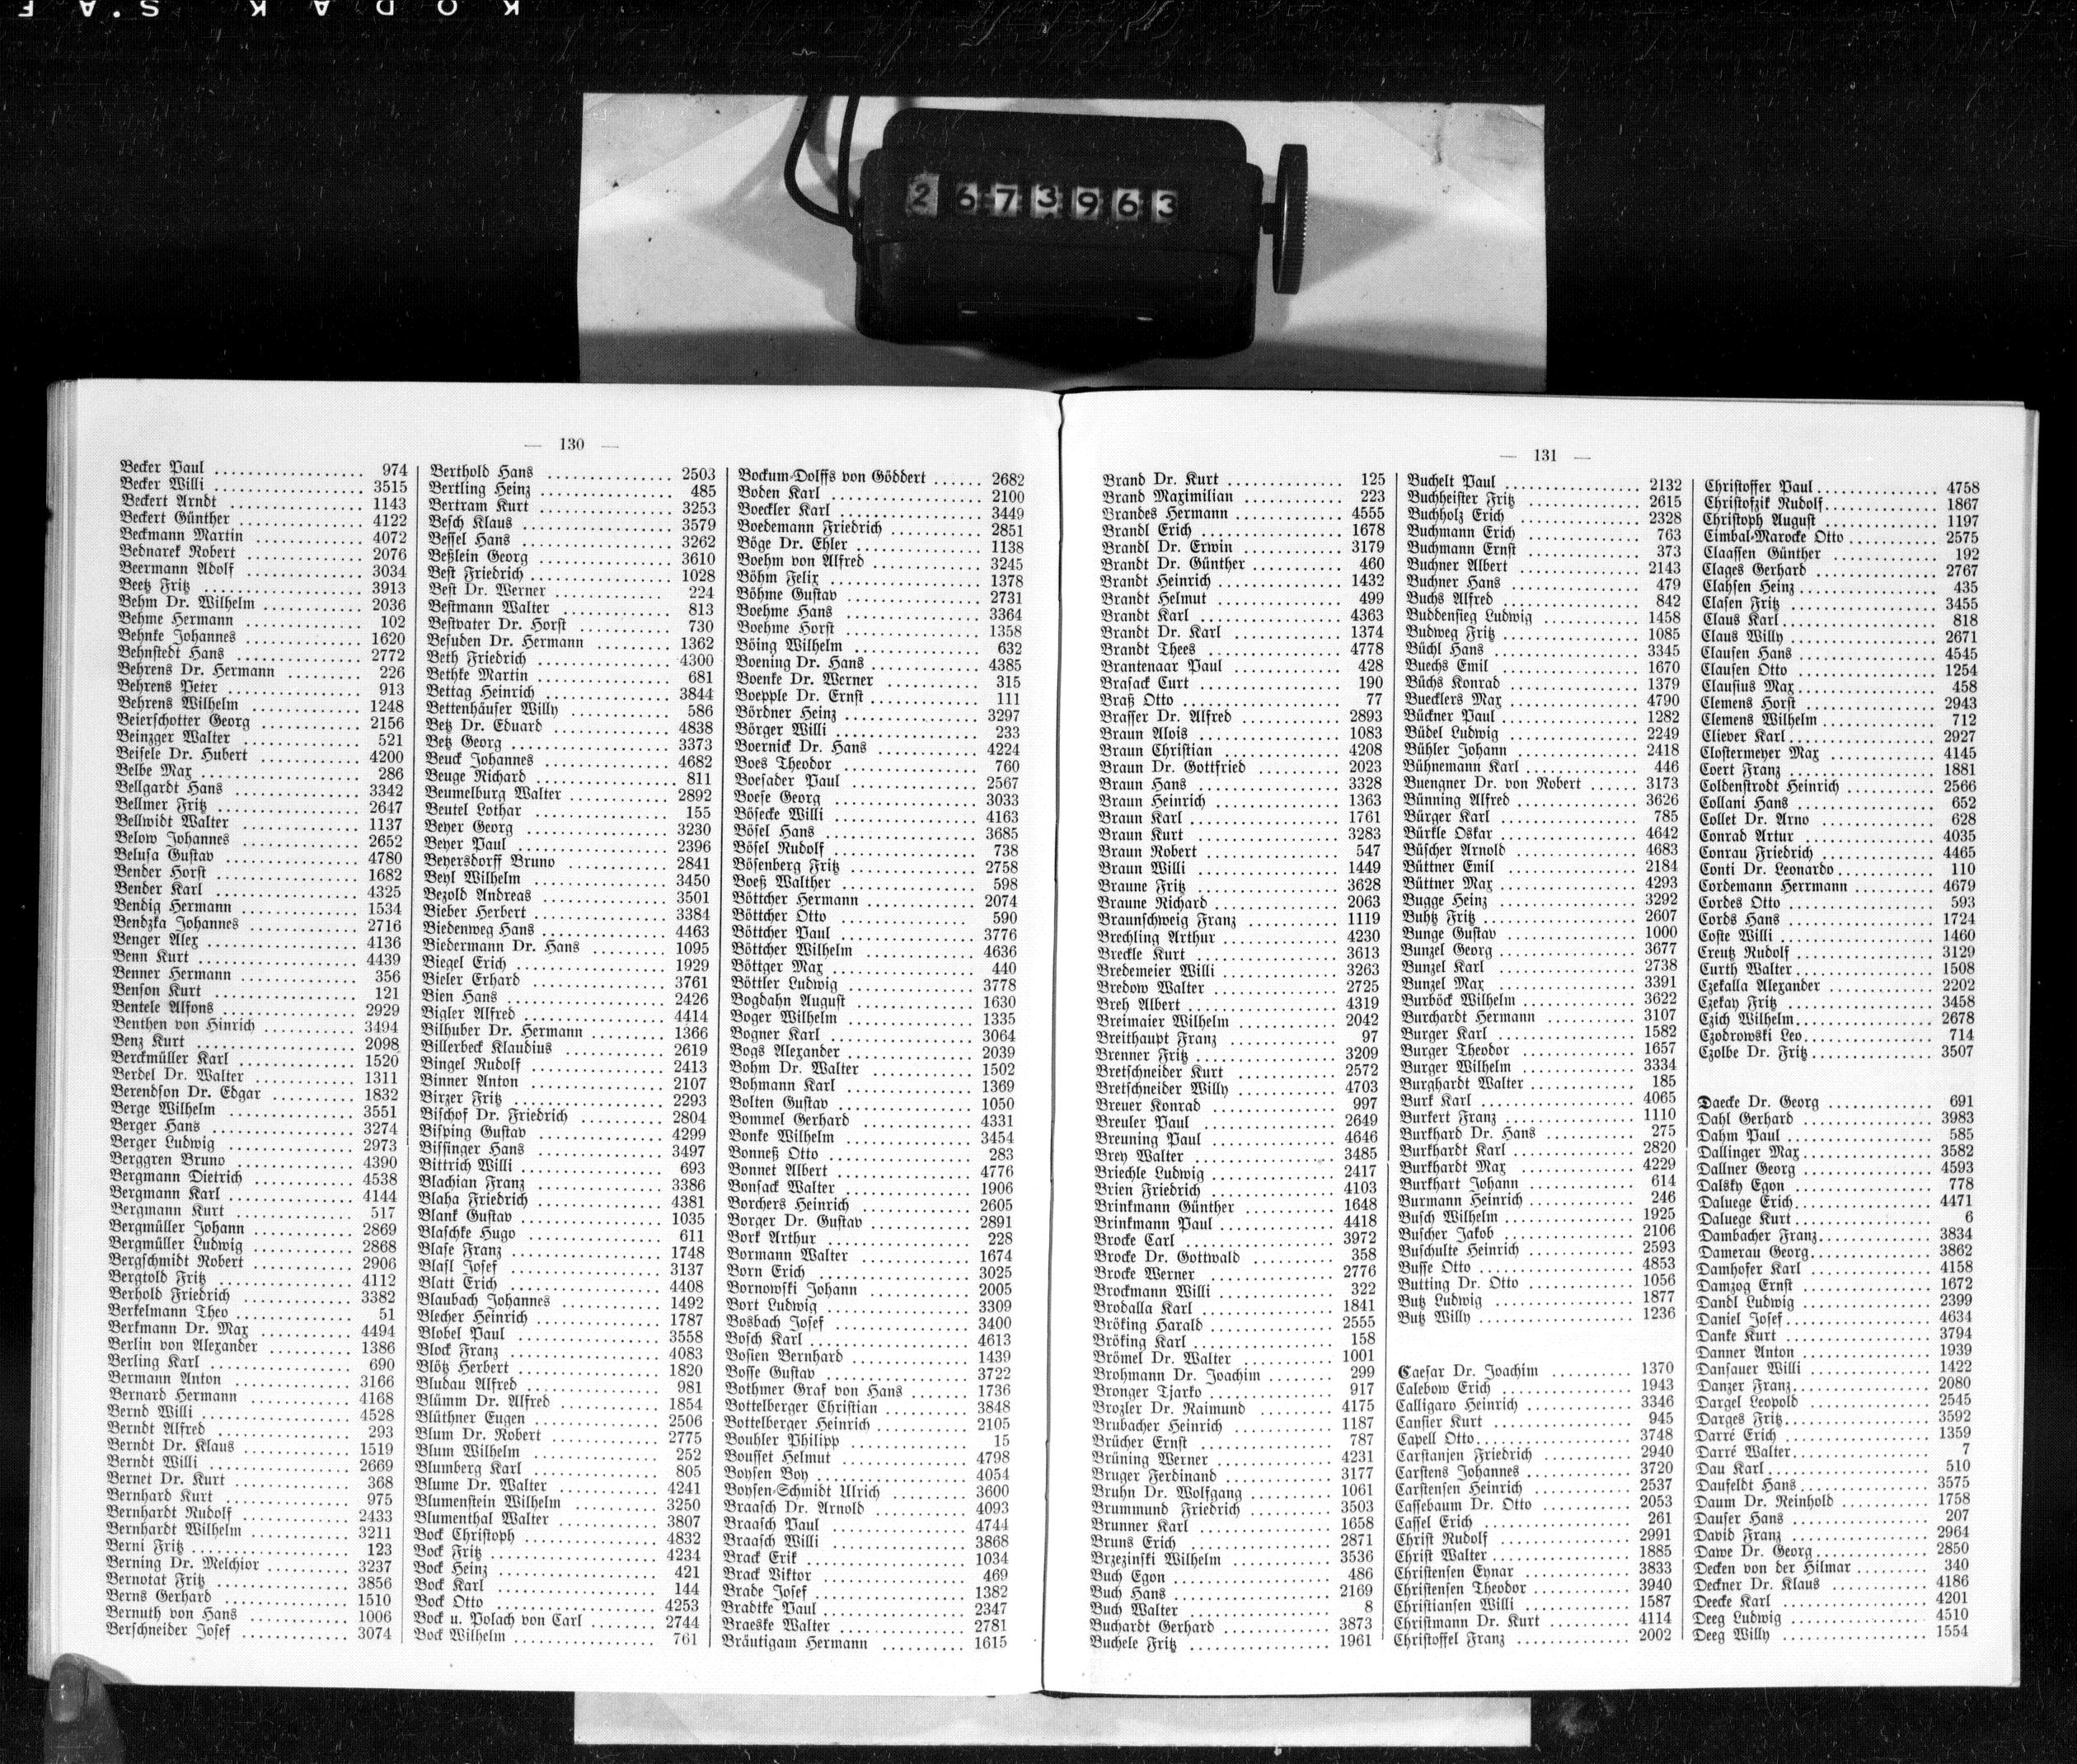 KODAK S'AF
2673963
— 130 —
Becker Paul 974
Becker Willi 3515
Beckert Arndt 1143
Beckert Günther 4122
Beckmann Martin 4072
Bednarek Robert 2076
Beermann Adolf 3034
Beetz Fritz 3913
Behm Dr. Wilhelm 2036
Behme Hermann 102
Behnke Johannes 1620
Behnstedt Hans 2772
Behrens Dr. Hermann 226
Behrens Peter 913
Behrens Wilhelm 1248
Beierschotter Georg 2156
Beinzger Walter 521
Beisele Dr. Hubert 4200
Belbe Max 286
Bellgardt Hans 3342
Bellmer Fritz 2647
Bellwidt Walter 1137
Below Johannes 2652
Belusa Gustav 4780
Bender Horst 1682
Bender Karl 4325
Bendig Hermann 1534
Bendzka Johannes 2716
Benger Alex 4136
Benn Kurt 4439
Benner Hermann 356
Benson Kurt 121
Bentele Alfons 2929
Benthen von Hinrich 3494
Benz Kurt 2098
Berckmüller Karl 1520
Berdel Dr. Walter 1311
Berendson Dr. Edgar 1832
Berge Wilhelm 3551
Berger Hans 3274
Berger Ludwig 2973
Berggren Bruno 4390
Bergmann Dietrich 4538
Bergmann Karl 4144
Bergmann Kurt 517
Bergmüller Johann 2869
Bergmüller Ludwig 2868
Bergschmidt Robert 2906
Bergtold Fritz 4112
Berhold Friedrich 3382
Berkelmann Theo 51
Berkmann Dr. Max 4494
Berlin von Alexander 1386
Berling Karl 690
Bermann Anton 3166
Bernard Hermann 4168
Bernd Willi 4528
Berndt Alfred 293
Berndt Dr. Klaus 1519
Berndt Willi 2669
Bernet Dr. Kurt 368
Bernhard Kurt 975
Bernhardt Rudolf 2433
Bernhardt Wilhelm 3211
Berni Fritz 123
Berning Dr. Melchior 3237
Bernotat Fritz 3856
Berns Gerhard 1510
Bernuth von Hans 1006
Berschneider Josef 3074
Berthold Hans 2503
Bertling Heinz 485
Bertram Kurt 3253
Besch Klaus 3579
Bessel Hans 3262
Beßlein Georg 3610
Best Friedrich 1028
Best Dr. Werner 224
Bestmann Walter 813
Bestvater Dr. Horst 730
Besuden Dr. Hermann 1362
Beth Friedrich 4300
Bethke Martin 681
Bettag Heinrich 3844
Bettenhäuser Willy 586
Betz Dr. Eduard 4838
Betz Georg 3373
Beuck Johannes 4682
Beuge Richard 811
Beumelburg Walter 2892
Beutel Lothar 155
Beyer Georg 3230
Beyer Paul 2396
Beyersdorff Bruno 2841
Beyl Wilhelm 3450
Bezold Andreas 3501
Bieber Herbert 3384
Biedenweg Hans 4463
Biedermann Dr. Hans 1095
Biegel Erich 1929
Bieler Erhard 3761
Bien Hans 2426
Bigler Alfred 4414
Bilhuber Dr. Hermann 1366
Billerbeck Klaudius 2619
Bingel Rudolf 2413
Binner Anton 2107
Birzer Fritz 2293
Bischof Dr. Friedrich 2804
Bisping Gustav 4299
Bissinger Hans 3497
Bittrich Willi 693
Blachian Franz 3386
Blaha Friedrich 4381
Blank Gustav 1035
Blaschke Hugo 611
Blase Franz 1748
Blasl Josef 3137
Blatt Erich 4408
Blaubach Johannes 1492
Blecher Heinrich 1787
Blobel Paul 3558
Block Franz 4083
Blötz Herbert 1820
Bludau Alfred 981
Blümm Dr. Alfred 1854
Blüthner Eugen 2506
Blum Dr. Robert 2775
Blum Wilhelm 252
Blumberg Karl 805
Blume Dr. Walter 4241
Blumenstein Wilhelm 3250
Blumenthal Walter 3807
Bock Christoph 4832
Bock Fritz 4234
Bock Heinz 421
Bock Karl 144
Bock Otto 4253
Bock u. Polach von Carl 2744
Bock Wilhelm 761
Bockum-Dolffs von Göddert 2682
Boden Karl 2100
Boeckler Karl 3449
Boedemann Friedrich 2851
Böge Dr. Ehler 1138
Boehm von Alfred 3245
Böhm Felix 1378
Böhme Gustav 2731
Boehme Hans 3364
Boehme Horst 1358
Böing Wilhelm 632
Boening Dr. Hans 4385
Boenke Dr. Werner 315
Boepple Dr. Ernst 111
Bördner Heinz 3297
Börger Willi 233
Boernick Dr. Hans 4224
Boes Theodor 760
Boesader Paul 2567
Boese Georg 3033
Bösecke Willi 4163
Bösel Hans 3685
Bösel Rudolf 738
Bösenberg Fritz 2758
Boeß Walther 598
Böttcher Hermann 2074
Böttcher Otto 590
Böttcher Paul 3776
Böttcher Wilhelm 4636
Böttger Max 440
Böttler Ludwig 3778
Bogdahn August 1630
Boger Wilhelm 1335
Bogner Karl 3064
Bogs Alexander 2039
Bohm Dr. Walter 1502
Bohmann Karl 1369
Bolten Gustav 1050
Bommel Gerhard 4331
Bonke Wilhelm 3454
Bonneß Otto 283
Bonnet Albert 4776
Bonsack Walter 1906
Borchers Heinrich 2605
Borger Dr. Gustav 2891
Bork Arthur 228
Bormann Walter 1674
Born Erich 3025
Bornowski Johann 2005
Bort Ludwig 3309
Bosbach Josef 3400
Bosch Karl 4613
Bosien Bernhard 1439
Bosse Gustav 3722
Bothmer Graf von Hans 1736
Bottelberger Christian 3848
Bottelberger Heinrich 2105
Bouhler Philipp 15
Bousset Helmut 4798
Boysen Boy 4054
Boysen-Schmidt Ulrich 3600
Braasch Dr. Arnold 4093
Braasch Paul 4744
Braasch Willi 3868
Brack Erik 1034
Brack Viktor 469
Brade Josef 1382
Bradtke Paul 2347
Braeske Walter 2781
Bräutigam Hermann 1615
— 131 —
Brand Dr. Kurt 125
Brand Maximilian 223
Brandes Hermann 4555
Brandl Erich 1678
Brandl Dr. Erwin 3179
Brandt Dr. Günther 460
Brandt Heinrich 1432
Brandt Helmut 499
Brandt Karl 4363
Brandt Dr. Karl 1374
Brandt Thees 4778
Brantenaar Paul 428
Brasack Curt 190
Braß Otto 77
Brasser Dr. Alfred 2893
Braun Alois 1083
Braun Christian 4208
Braun Dr. Gottfried 2023
Braun Hans 3328
Braun Heinrich 1363
Braun Karl 1761
Braun Kurt 3283
Braun Robert 547
Braun Willi 1449
Braune Fritz 3628
Braune Richard 2063
Braunschweig Franz 1119
Brechling Arthur 4230
Breckle Kurt 3613
Bredemeier Willi 3263
Bredow Walter 2725
Breh Albert 4319
Breimaier Wilhelm 2042
Breithaupt Franz 97
Brenner Fritz 3209
Bretschneider Kurt 2572
Bretschneider Willy 4703
Breuer Konrad 997
Breuler Paul 2649
Breuning Paul 4646
Brey Walter 3485
Briechle Ludwig 2417
Brien Friedrich 4103
Brinkmann Günther 1648
Brinkmann Paul 4418
Brocke Carl 3972
Brocke Dr. Gottwald 358
Brocke Werner 2776
Brockmann Willi 322
Brodalla Karl 1841
Bröking Harald 2555
Bröking Karl 158
Brömel Dr. Walter 1001
Brohmann Dr. Joachim 299
Bronger Tjarko 917
Brozler Dr. Raimund 4175
Brubacher Heinrich 1187
Brücher Ernst 787
Brüning Werner 4231
Bruger Ferdinand 3177
Bruhn Dr. Wolfgang 1061
Brummund Friedrich 3503
Brunner Karl 1658
Bruns Erich 2871
Brzezinski Wilhelm 3536
Buch Egon 486
Buch Hans 2169
Buch Walter 8
Buchardt Gerhard 3873
Buchele Fritz 1961
Buchelt Paul 2132
Buchheister Fritz 2615
Buchholz Erich 2328
Buchmann Erich 763
Buchmann Ernst 373
Buchner Albert 2143
Buchner Hans 479
Buchs Alfred 842
Buddensieg Ludwig 1458
Budweg Fritz 1085
Büchl Hans 3345
Buechs Emil 1670
Büchs Konrad 1379
Buecklers Max 4790
Bückner Paul 1282
Büdel Ludwig 2249
Bühler Johann 2418
Bühnemann Karl 446
Buengner Dr. von Robert 3173
Bünning Alfred 3626
Bürger Karl 785
Bürkle Oskar 4642
Büscher Arnold 4683
Büttner Emil 2184
Büttner Max 4293
Bugge Heinz 3292
Buhtz Fritz 2607
Bunge Gustav 1000
Bunzel Georg 3677
Bunzel Karl 2738
Bunzel Max 3391
Burböck Wilhelm 3622
Burchardt Hermann 3107
Burger Karl 1582
Burger Theodor 1657
Burger Wilhelm 3334
Burghardt Walter 185
Burk Karl 4065
Burkert Franz 1110
Burkhard Dr. Hans 275
Burkhardt Karl 2820
Burkhardt Max 4229
Burkhart Johann 614
Burmann Heinrich 246
Busch Wilhelm 1925
Buscher Jakob 2106
Buschulte Heinrich 2593
Busse Otto 4853
Butting Dr. Otto 1056
Butz Ludwig 1877
Butz Willy 1236
Caesar Dr. Joachim 1370
Calebow Erich 1943
Calligaro Heinrich 3346
Cansier Kurt 945
Capell Otto 3748
Carstanjen Friedrich 2940
Carstens Johannes 3720
Carstensen Heinrich 2537
Cassebaum Dr. Otto 2053
Cassel Erich 261
Christ Rudolf 2991
Christ Walter 1885
Christensen Eynar 3833
Christensen Theodor 3940
Christiansen Willi 1587
Christmann Dr. Kurt 4114
Christoffel Franz 2002
Christoffer Paul 4758
Christofzik Rudolf 1867
Christoph August 1197
Cimbal-Marocke Otto 2575
Claassen Günther 192
Clages Gerhard 2767
Clahsen Heinz 435
Clasen Fritz 3455
Claus Karl 818
Claus Willy 2671
Clausen Hans 4545
Clausen Otto 1254
Clausius Max 458
Clemens Horst 2943
Clemens Wilhelm 712
Cliever Karl 2927
Clostermeyer Max 4145
Coert Franz 1881
Coldenstrodt Heinrich 2566
Collani Hans 652
Collet Dr. Arno 628
Conrad Artur 4035
Conrau Friedrich 4465
Conti Dr. Leonardo 110
Cordemann Herrmann 4679
Cordes Otto 593
Cords Hans 1724
Coste Willi 1460
Creutz Rudolf 3129
Curth Walter 1508
Czekalla Alexander 2202
Czekay Fritz 3458
Czich Wilhelm 2678
Czodrowski Leo 714
Czolbe Dr. Fritz 3507
Daecke Dr. Georg 691
Dahl Gerhard 3983
Dahm Paul 585
Dallinger Max 3582
Dallner Georg 4593
Dalsky Egon 778
Daluege Erich 4471
Daluege Kurt 6
Dambacher Franz 3834
Damerau Georg 3862
Damhofer Karl 4158
Damzog Ernst 1672
Dandl Ludwig 2399
Daniel Josef 4634
Danke Kurt 3794
Danner Anton 1939
Dansauer Willi 1422
Danzer Franz 2080
Dargel Leopold 2545
Darges Fritz 3592
Darré Erich 1359
Darré Walter 7
Dau Karl 510
Daufeldt Hans 3575
Daum Dr. Reinhold 1758
Dauser Hans 207
David Franz 2964
Dawe Dr. Georg 2850
Decken von der Hilmar 340
Deckner Dr. Klaus 4186
Deecke Karl 4201
Deeg Ludwig 4510
Deeg Willy 1554